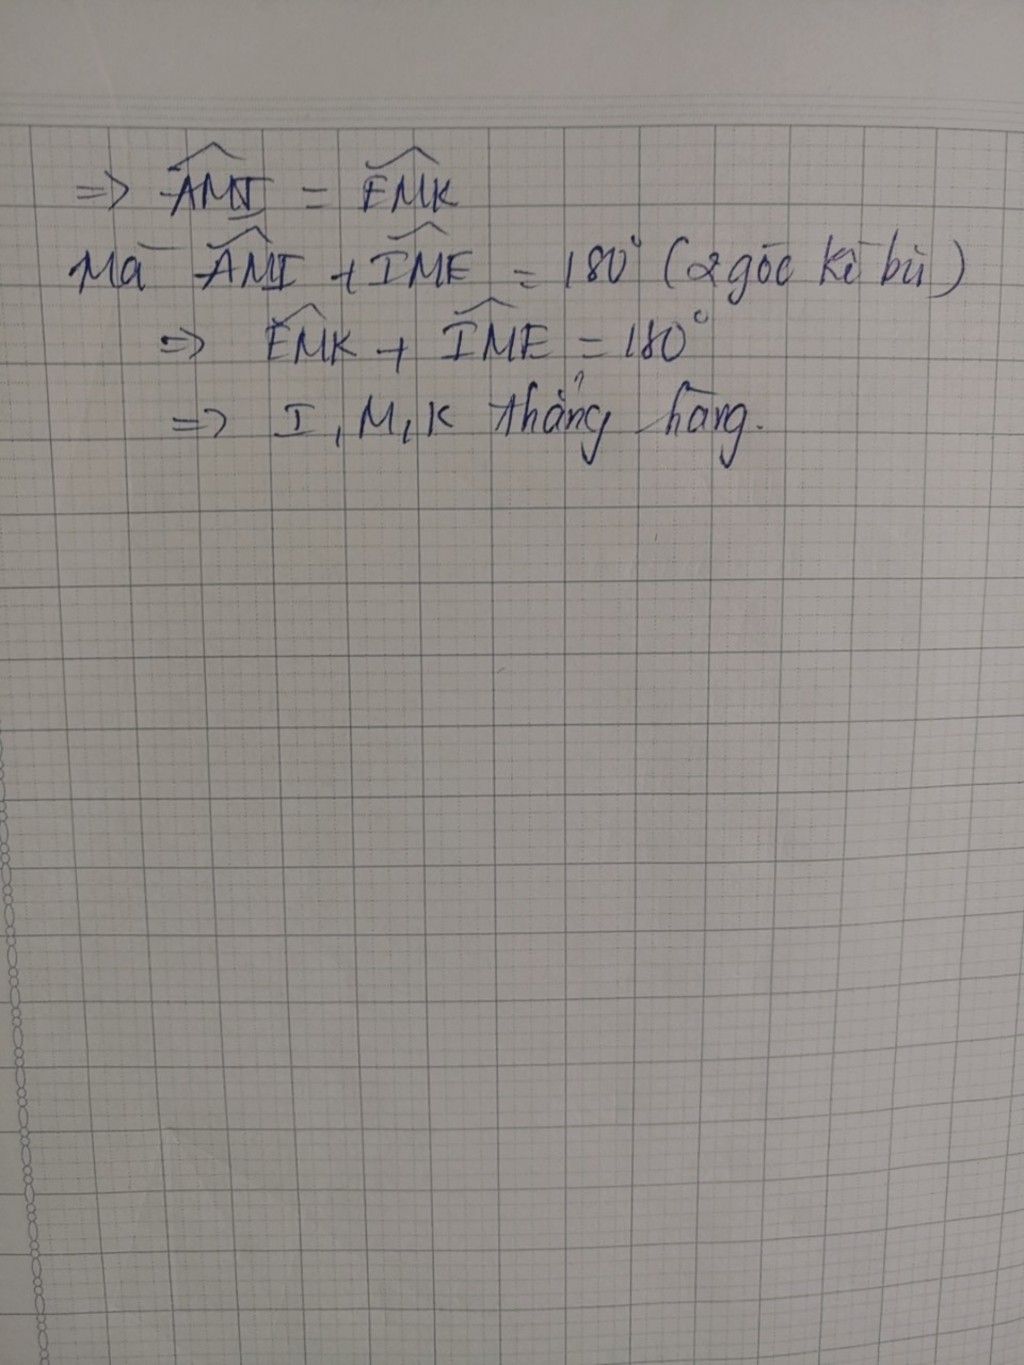 => \widehat{AMI} = \widehat{EMK}
Mà \widehat{AMI} + \widehat{IME} = 180° (2 góc kề bù)
=> \widehat{EMK} + \widehat{IME} = 180°
=> I, M, K thẳng hàng.